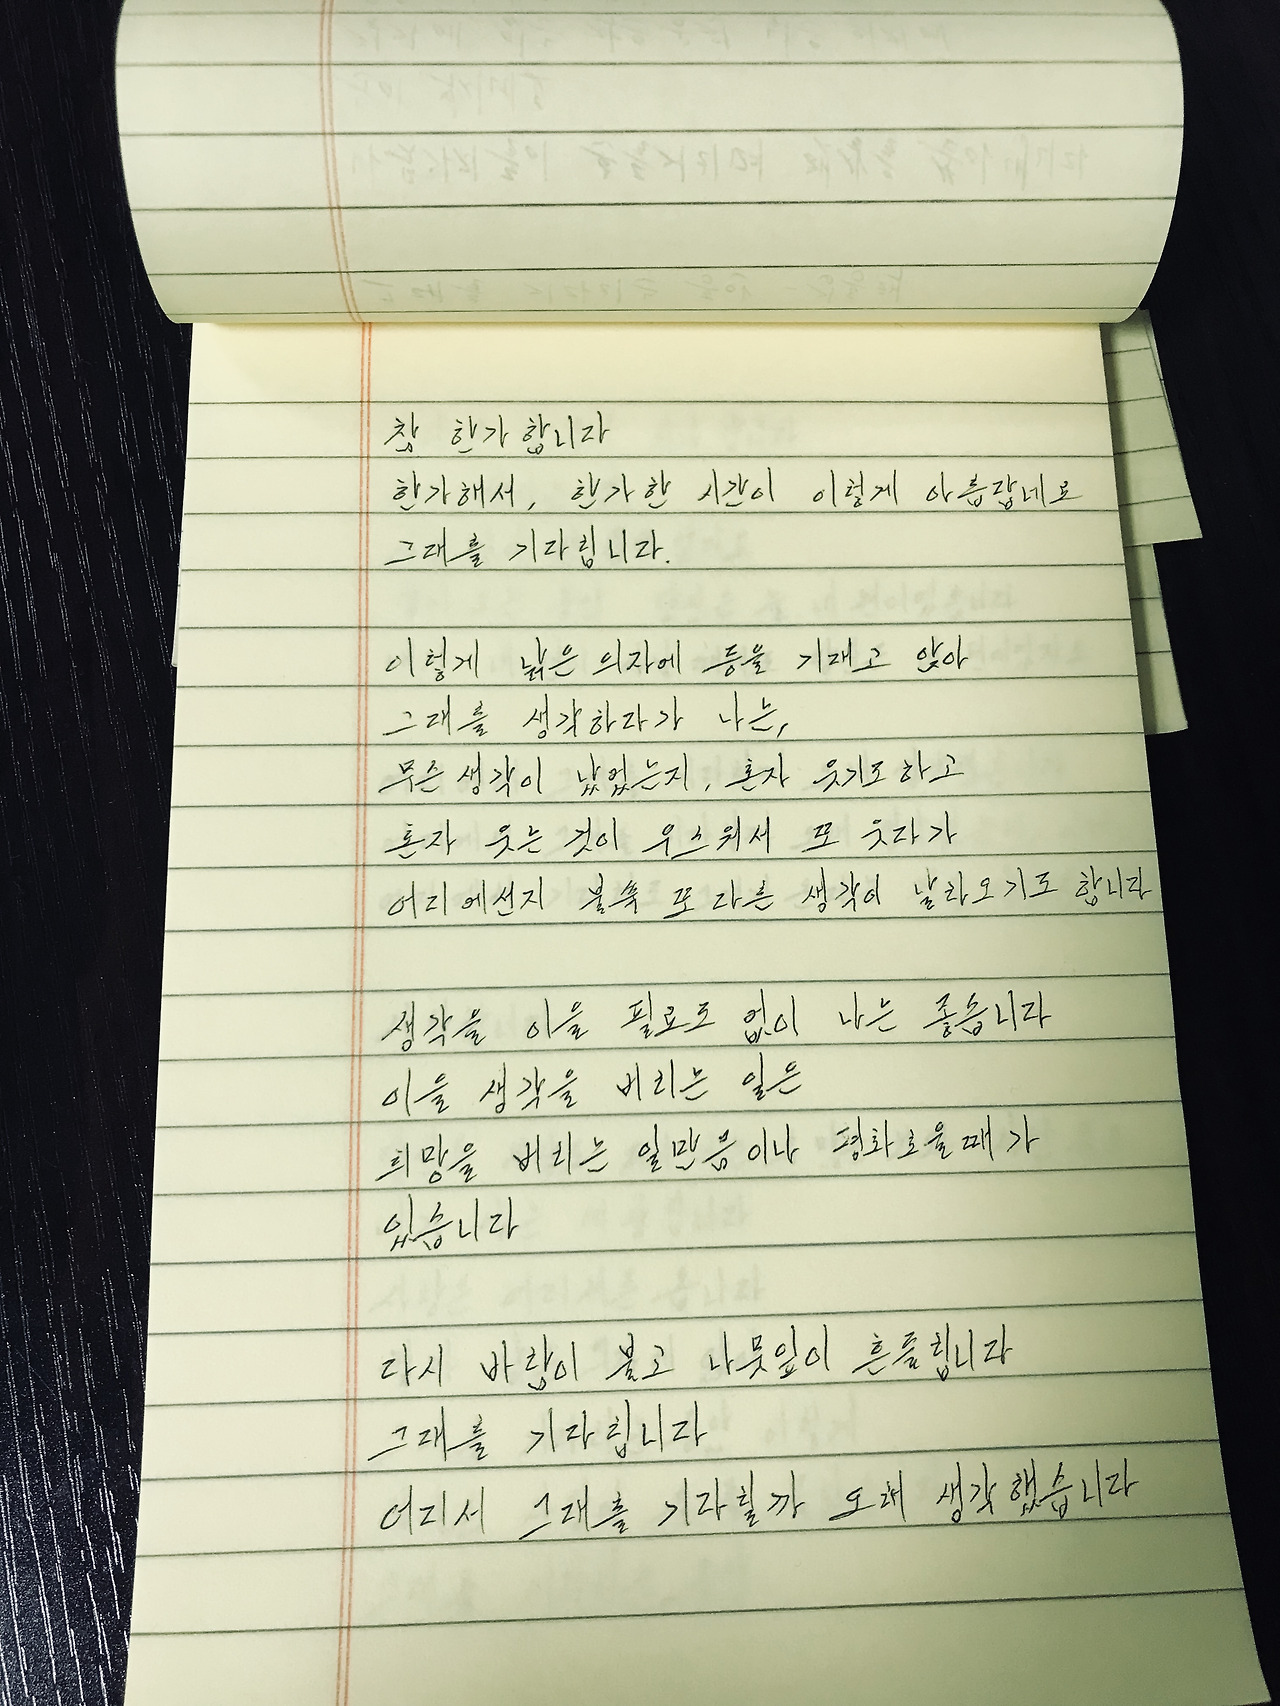 참 한가합니다
한가해서, 한가한 시간이 이렇게 아름답네요
그대를 기다립니다.
이렇게 낡은 의자에 등을 기대고 앉아
그대를 생각하다가 나는,
무슨 생각이 났었는지, 혼자 웃기도하고
혼자 웃는 것이 우스워서 또 웃다가
어디에선지 불쑥 또 다른 생각이 날라오기도 합니다
생각을 이을 필요도 없이 나는 좋습니다
이을 생각을 버리는 일은
희망을 버리는 일만큼이나 평화로울때가
있습니다
다시 바람이 불고 나뭇잎이 흔들립니다
그대를 기다립니다
어디서 그대를 기다릴까 오래 생각했습니다